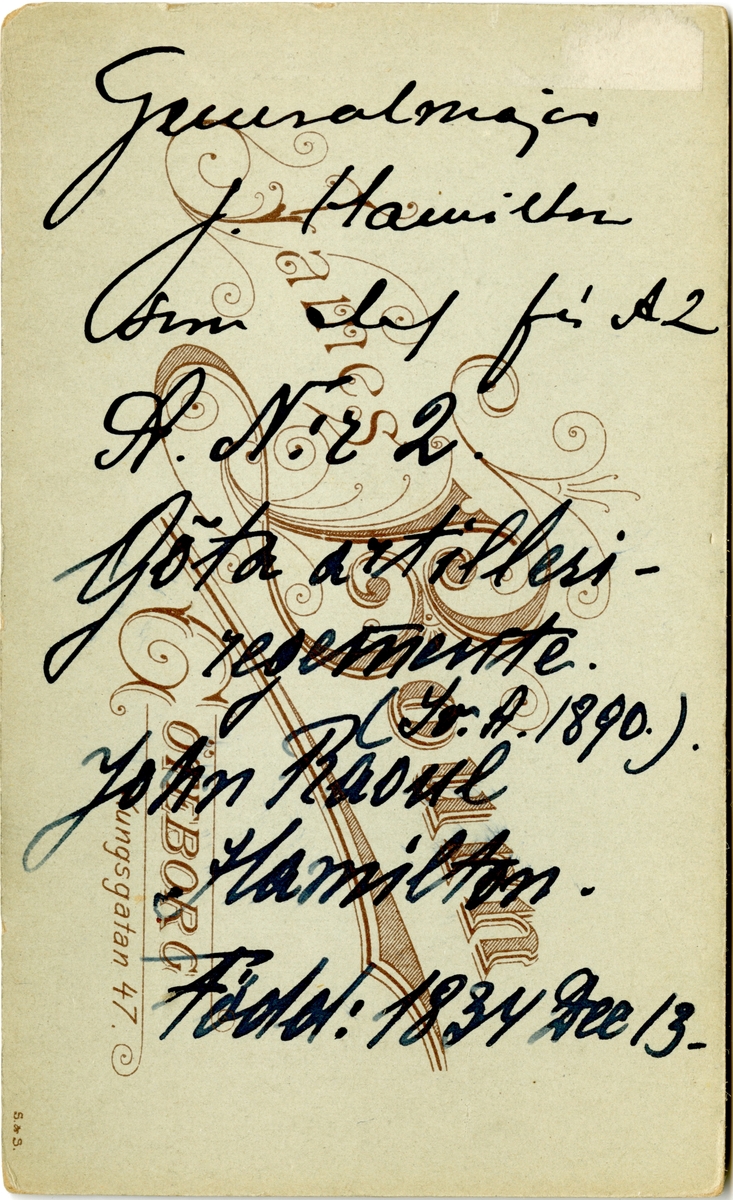 Generalmajor
J. Hamilton
som chef för A2
A. N:r 2.
Göta artilleri-
regemente.
(Sv. A. 1890.).
John Raoul
Hamilton.
Född: 1834 Dec 13-
GÖTEBORG
ungsgatan 47.
S. & S.